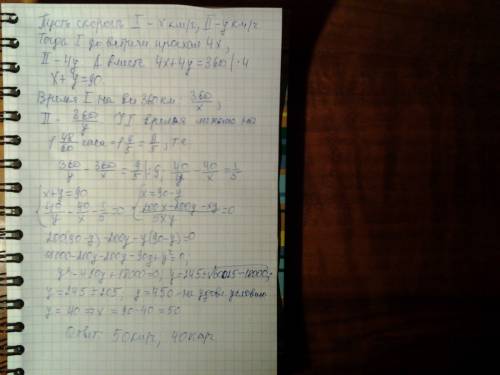 Пусть скорость I - x км/ч, II - y км/ч
Тогда I до встречи прошел 4x,
II - 4y. А вместе 4x+4y=360 |:4
x+y=90.
Время I на все 360 км 360/x,
II - 360/y.
1 48/60 часа = 1 4/5 = 9/5, т.е.
360/y - 360/x = 9/5 |:9, 40/y - 40/x = 1/5
{x+y=90 {x=90-y
{40/y - 40/x - 1/5 = 0 {(200x-200y-xy)/5xy = 0
200(90-y)-200y-y(90-y)=0
18000-200y-200y-90y+y²=0,
y²-490y+18000=0, y=245±√60025-18000,
y=245±205, y=450 - не удовл. условию
y=40 ⇒ x=90-40=50
Ответ: 50 км/ч, 40 км/ч